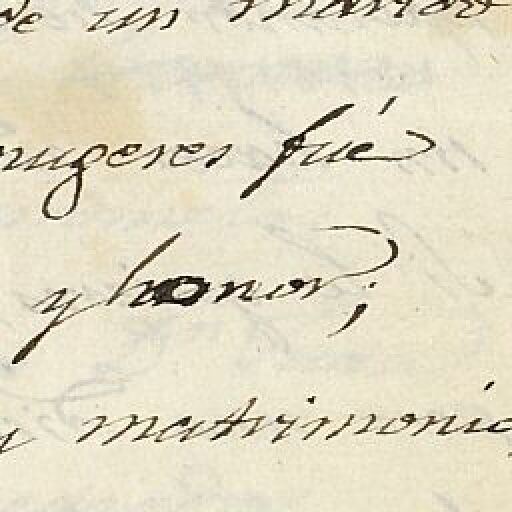 de un marido
mugeres fué
y honor;
y matrimonio,